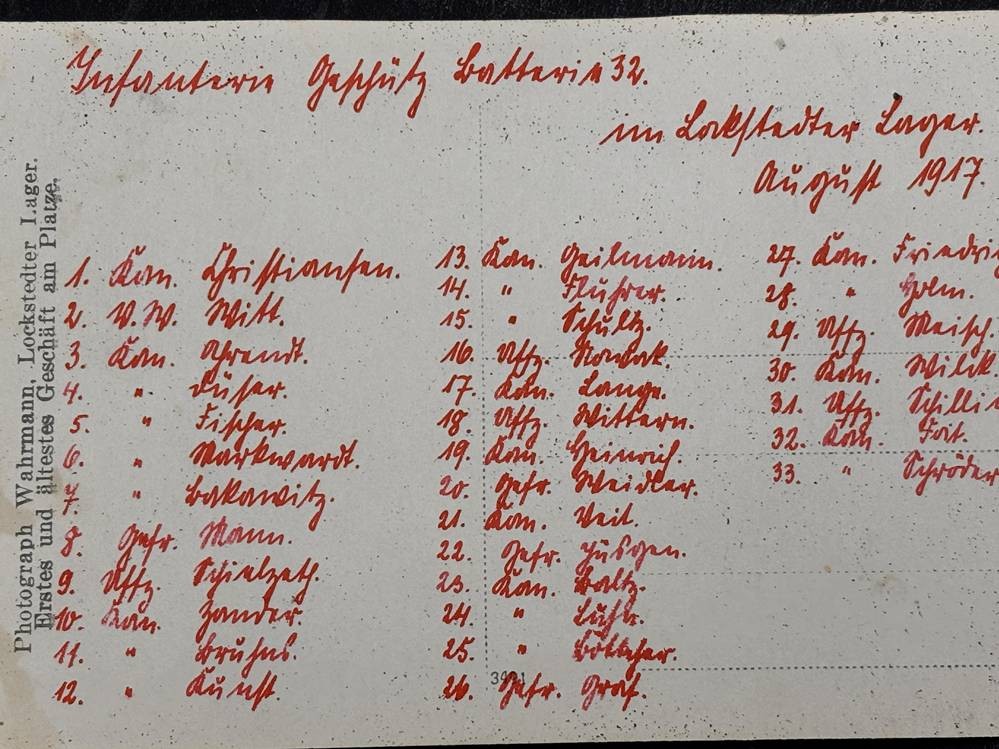 Infanterie Geschütz Batterie 32.
im Lokstedter Lager.
August 1917.
1. Kan. Christiansen.
2. V.W. Witt.
3. Kan. Ahrendt.
4. " Düser.
5. " Fischer.
6. " Markwardt.
7. " Bakawitz.
8. Gefr. Mann.
9. Uffz. Schielzeth.
10. Kan. Zander.
11. " Bruhns.
12. " Kunst.
13. Kan. Geilmann.
14. " Fluhrer.
15. " Schultz.
16. Uffz. Nowak.
17. Kan. Lange.
18. Uffz. Wittern.
19. Kan. Heinrich.
20. Gefr. Weidler.
21. Kan. Veit.
22. Gefr. Hüsgen.
23. Kan. Baltz.
24. "
25. " Böttcher.
26. Gefr. Graf.
27. Kan. Friedri
28. " Holm.
29. Uffz. Meisch.
30. Kan. Wilk.
31. Uffz. Schilli
32. Kan.
33. " Schröder
Photograph Wahrmann, Lockstedter Lager.
Erstes und ältestes Geschäft am Platze.